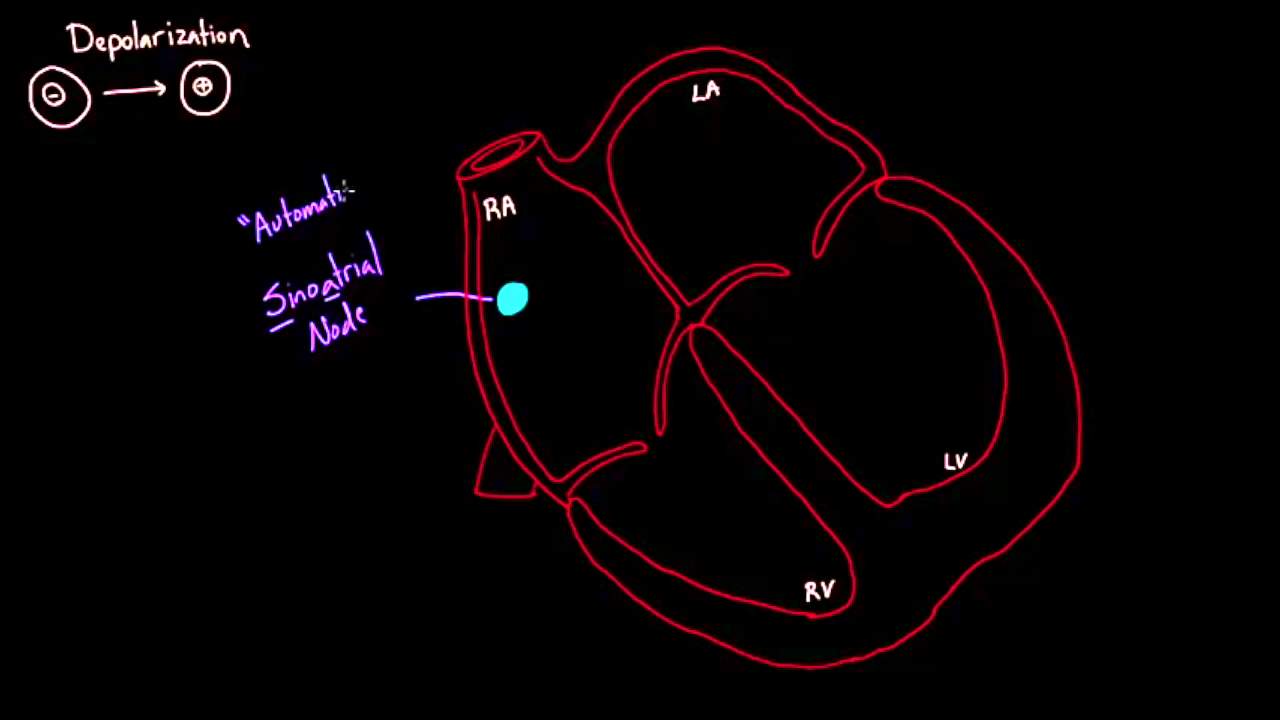 Depolarization
- → +
LA
RA
"Automati
Sinoatrial
Node
LV
RV